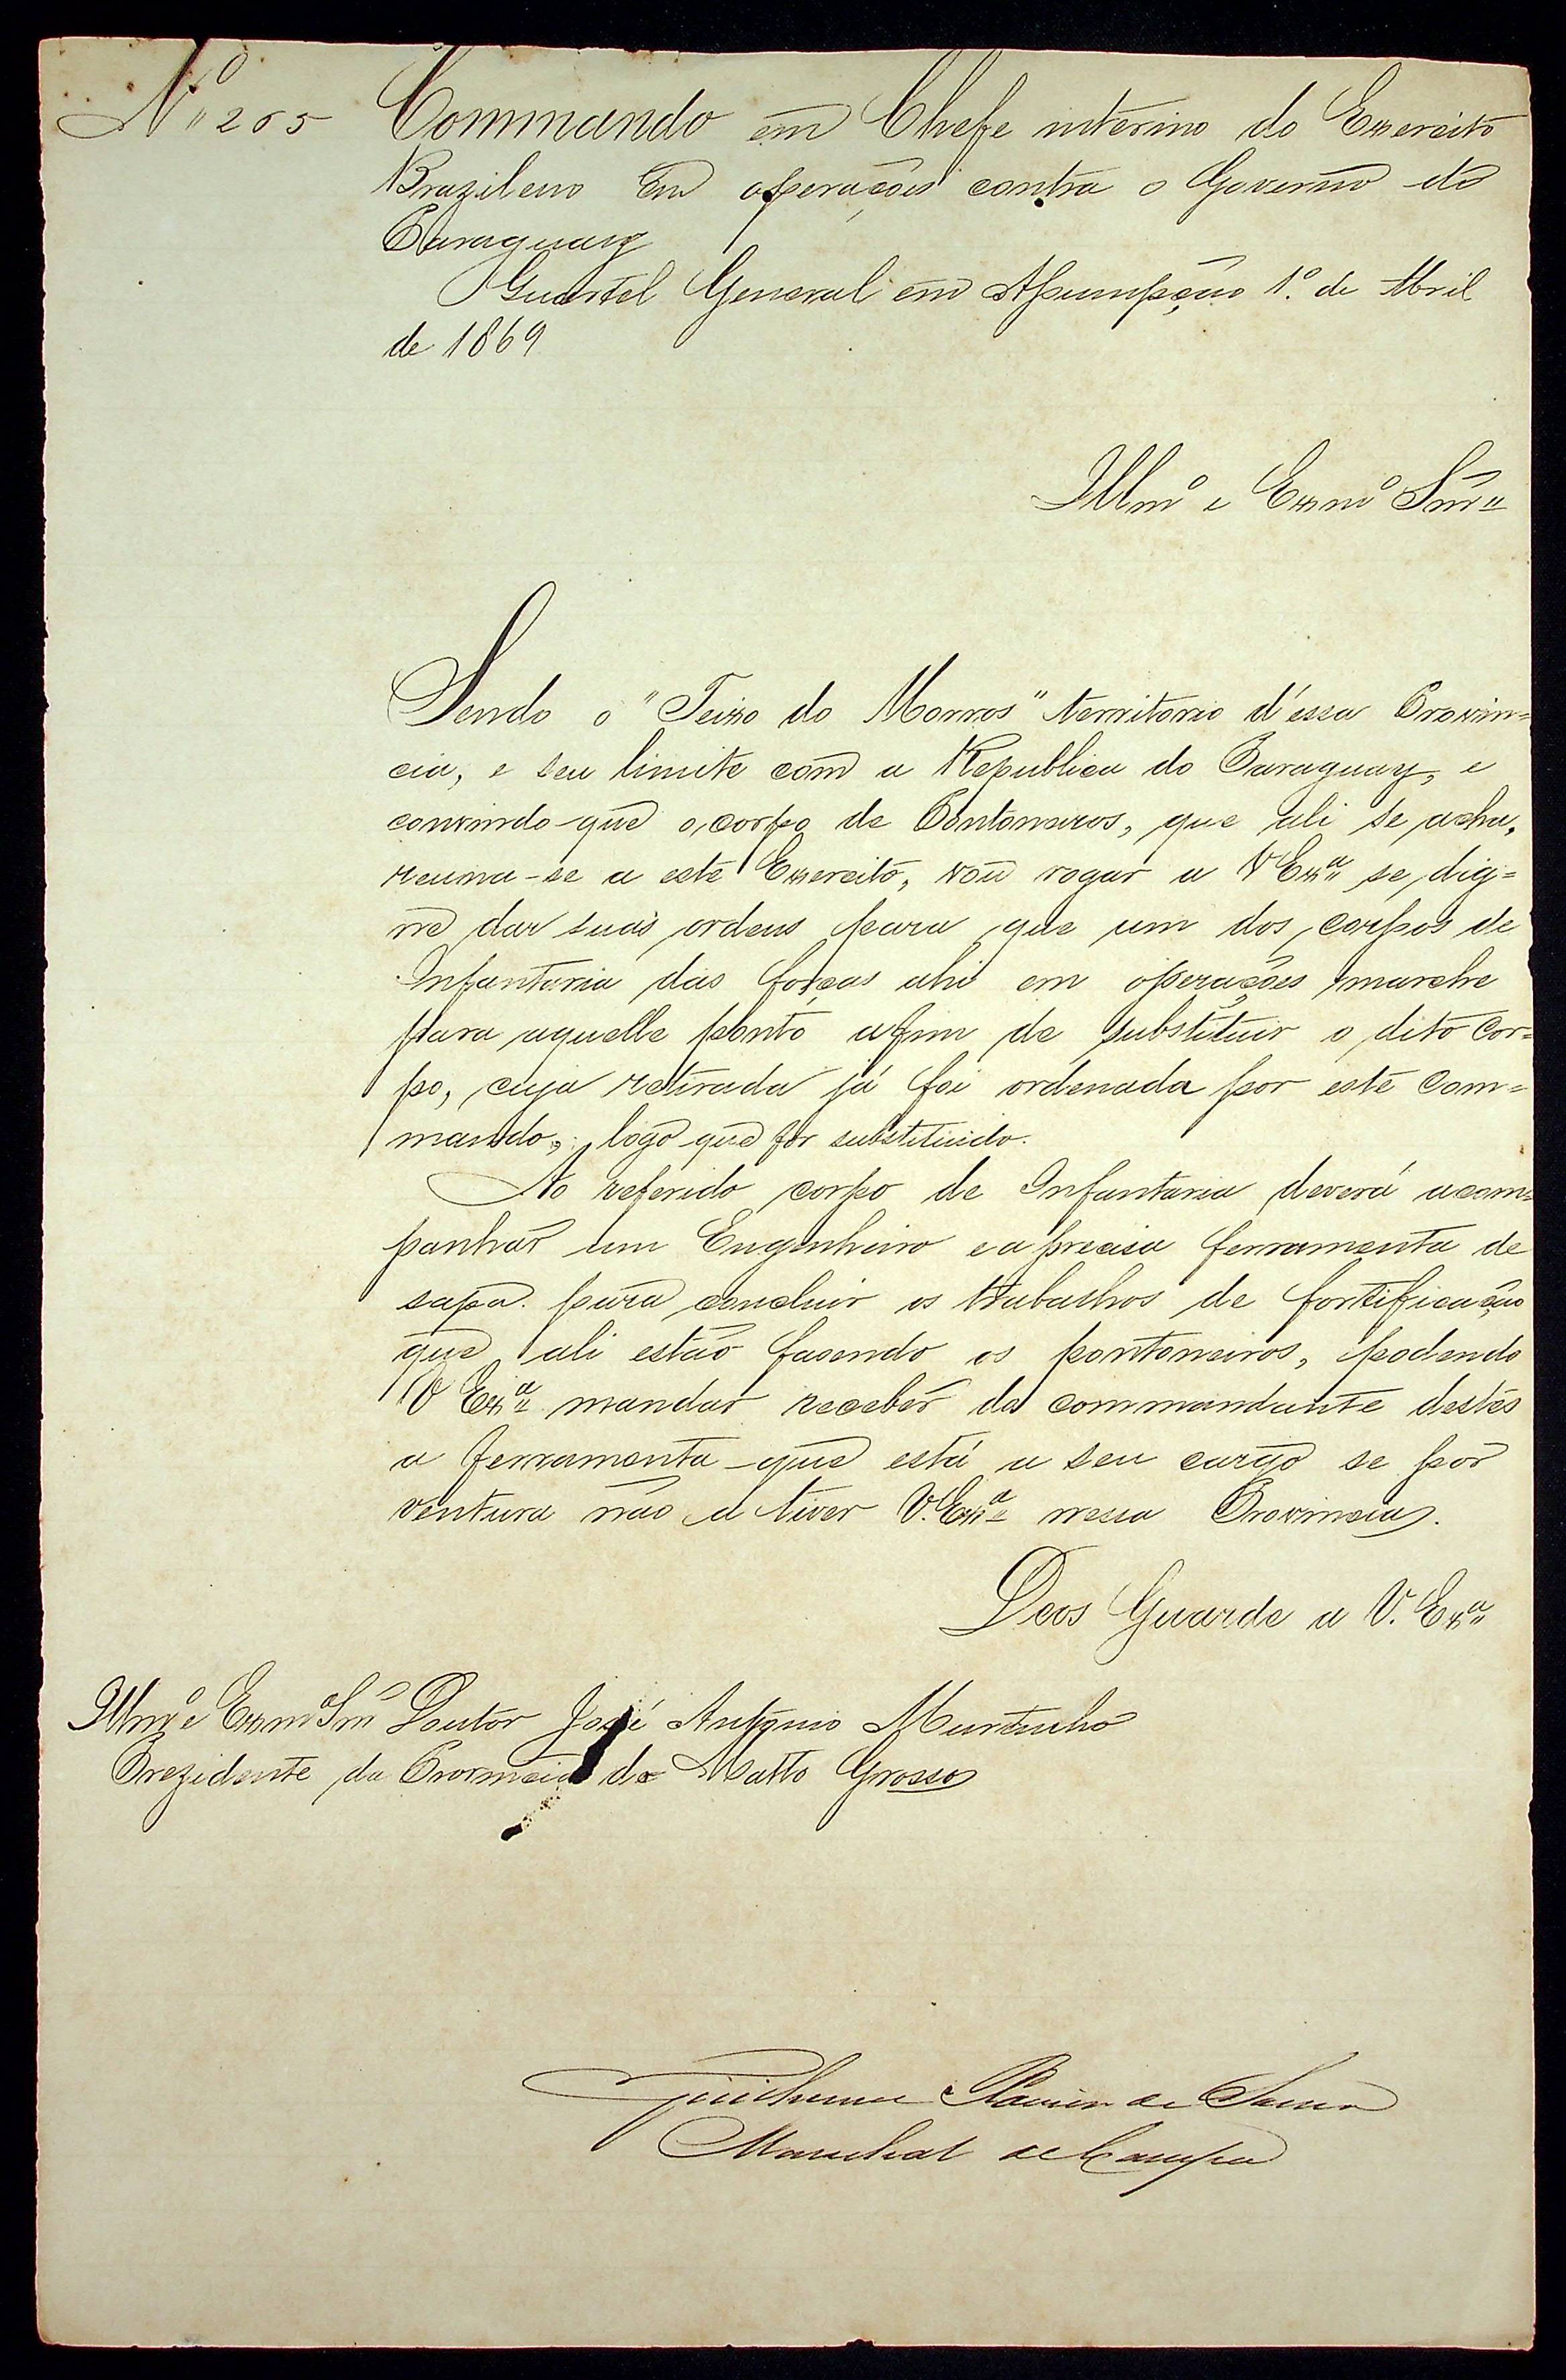 Nº 265
Commando em Chefe interino do Exercito
Brazileiro em operações contra o Governo do
Paraguay
Quartel General em Assumpção 1º. de Abril
de 1869
Illmº e Exmº Snr"
Sendo o "Feixo do Morros" territorio d'essa Provin=
cia, e seu limite com a Republica do Paraguay, e
convindo que o corpo de Pontoneiros, que ali se acha,
reuna-se a este Exercito, vou rogar a V Exª se dig=
ne dar suas ordens para que um dos corpos de
Infantaria das forças ahi em operações marche
para aquelle ponto afim de substituir o dito Cor=
po, cuja retirada já foi ordenada por este Com=
mando, logo que for substituido.
Ao referido corpo de Infantaria deverá acom=
panhar um Engenheiro e a precisa ferramenta de
sapa para concluir os trabalhos de fortificação
que ali estão fasendo os pontoneiros, podendo
V Exª mandar receber do commandante destes
a ferramenta que está a seu cargo se por
ventura não a tiver V. Exª nessa Provincia.
Deos Guarde a V. Exª
Illmº e Exmº Snr Doutor José Antonio Murtinho
Prezidente da Provincia de Matto Grosso
Guilherme Xavier de Souza
Marechal de Campo